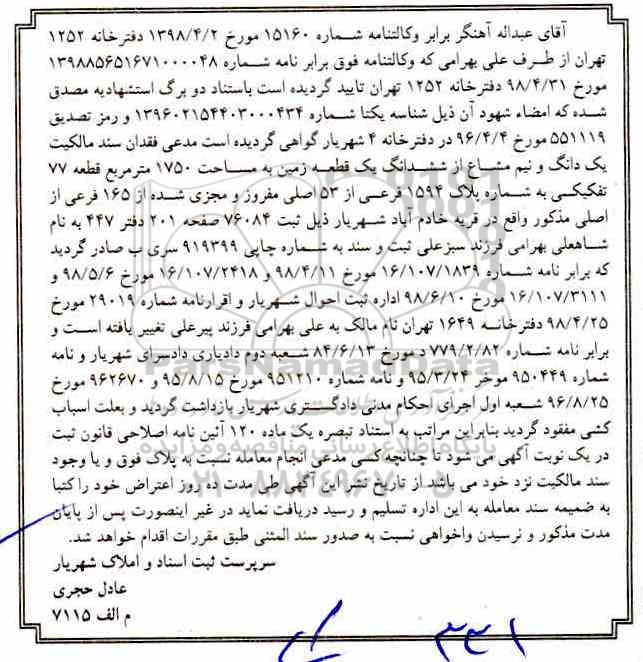 آقای عبداله آهنگر برابر وکالتنامه شماره ۱۵۱۶۰ مورخ ۱۳۹۸/۴/۲ دفترخانه ۱۲۵۲
تهران از طرف علی بهرامی که وکالتنامه فوق برابر نامه شماره ۱۳۹۸۸۵۶۵۱۶۷۱۰۰۰۰۴۸
مورخ ۹۸/۴/۳۱ دفترخانه ۱۲۵۲ تهران تایید گردیده است باستناد دو برگ استشهادیه مصدق
شده که امضاء شهود آن ذیل شناسه یکتا شماره ۱۳۹۶۰۲۱۵۴۴۰۳۰۰۰۴۳۴ و رمز تصدیق
۵۵۱۱۱۹ مورخ ۹۶/۴/۴ در دفترخانه ۴ شهریار گواهی گردیده است مدعی فقدان سند مالکیت
یک دانگ و نیم مشاع از ششدانگ یک قطعه زمین به مساحت ۱۷۵۰ مترمربع قطعه ۷۷
تفکیکی به شماره پلاک ۱۵۹۴ فرعی از ۵۳ اصلی مفروز و مجزی شده از ۱۶۵ فرعی از
اصلی مذکور واقع در قریه خادم آباد شهریار ذیل ثبت ۷۶۰۸۴ صفحه ۲۰۱ دفتر ۴۴۷ به نام
شاهعلی بهرامی فرزند سبزعلی ثبت و سند به شماره چاپی ۹۱۹۳۹۹ سری ب صادر گردید
که برابر نامه شماره ۱۶/۱۰۷/۱۸۳۹ مورخ ۹۸/۴/۱۱ و ۱۶/۱۰۷/۲۴۱۸ مورخ ۹۸/۵/۶ و
۱۶/۱۰۷/۳۱۱۱ مورخ ۹۸/۶/۱۰ اداره ثبت احوال شهریار و اقرارنامه شماره ۲۹۰۱۹ مورخ
۹۸/۴/۲۵ دفترخانه ۱۶۴۹ تهران نام مالک به علی بهرامی فرزند پیرعلی تغییر یافته است و
برابر نامه شماره ۷۷۹/۲/۸۲ د مورخ ۸۴/۶/۱۳ شعبه دوم دادیاری دادسرای شهریار و نامه
شماره ۹۵۰۴۴۹ موخر ۹۵/۳/۲۴ و نامه شماره ۹۵۱۲۱۰ مورخ ۹۵/۸/۱۵ و ۹۶۲۶۷۰ مورخ
۹۶/۸/۲۵ شعبه اول اجرای احکام مدنی دادگستری شهریار بازداشت گردید و بعلت اسباب
کشی مفقود گردید بنابراین مراتب به استناد تبصره یک ماده ۱۲۰ آئین نامه اصلاحی قانون ثبت
در یک نوبت آگهی می شود تا چنانچه کسی مدعی انجام معامله نسبت به پلاک فوق و یا وجود
سند مالکیت نزد خود می باشد از تاریخ نشر این آگهی طی مدت ده روز اعتراض خود را کتبا
به ضمیمه سند معامله به این اداره تسلیم و رسید دریافت نماید در غیر اینصورت پس از پایان
مدت مذکور و نرسیدن واخواهی نسبت به صدور سند المثنی طبق مقررات اقدام خواهد شد.
سرپرست ثبت اسناد و املاک شهریار
عادل حجری
م الف ۷۱۱۵
ParsNamadData
پایگاه اطلاع رسانی مناقصه و مزایده
۰۲۱-۸۸۳۴۹۶۷۰-۵
۳۳۱